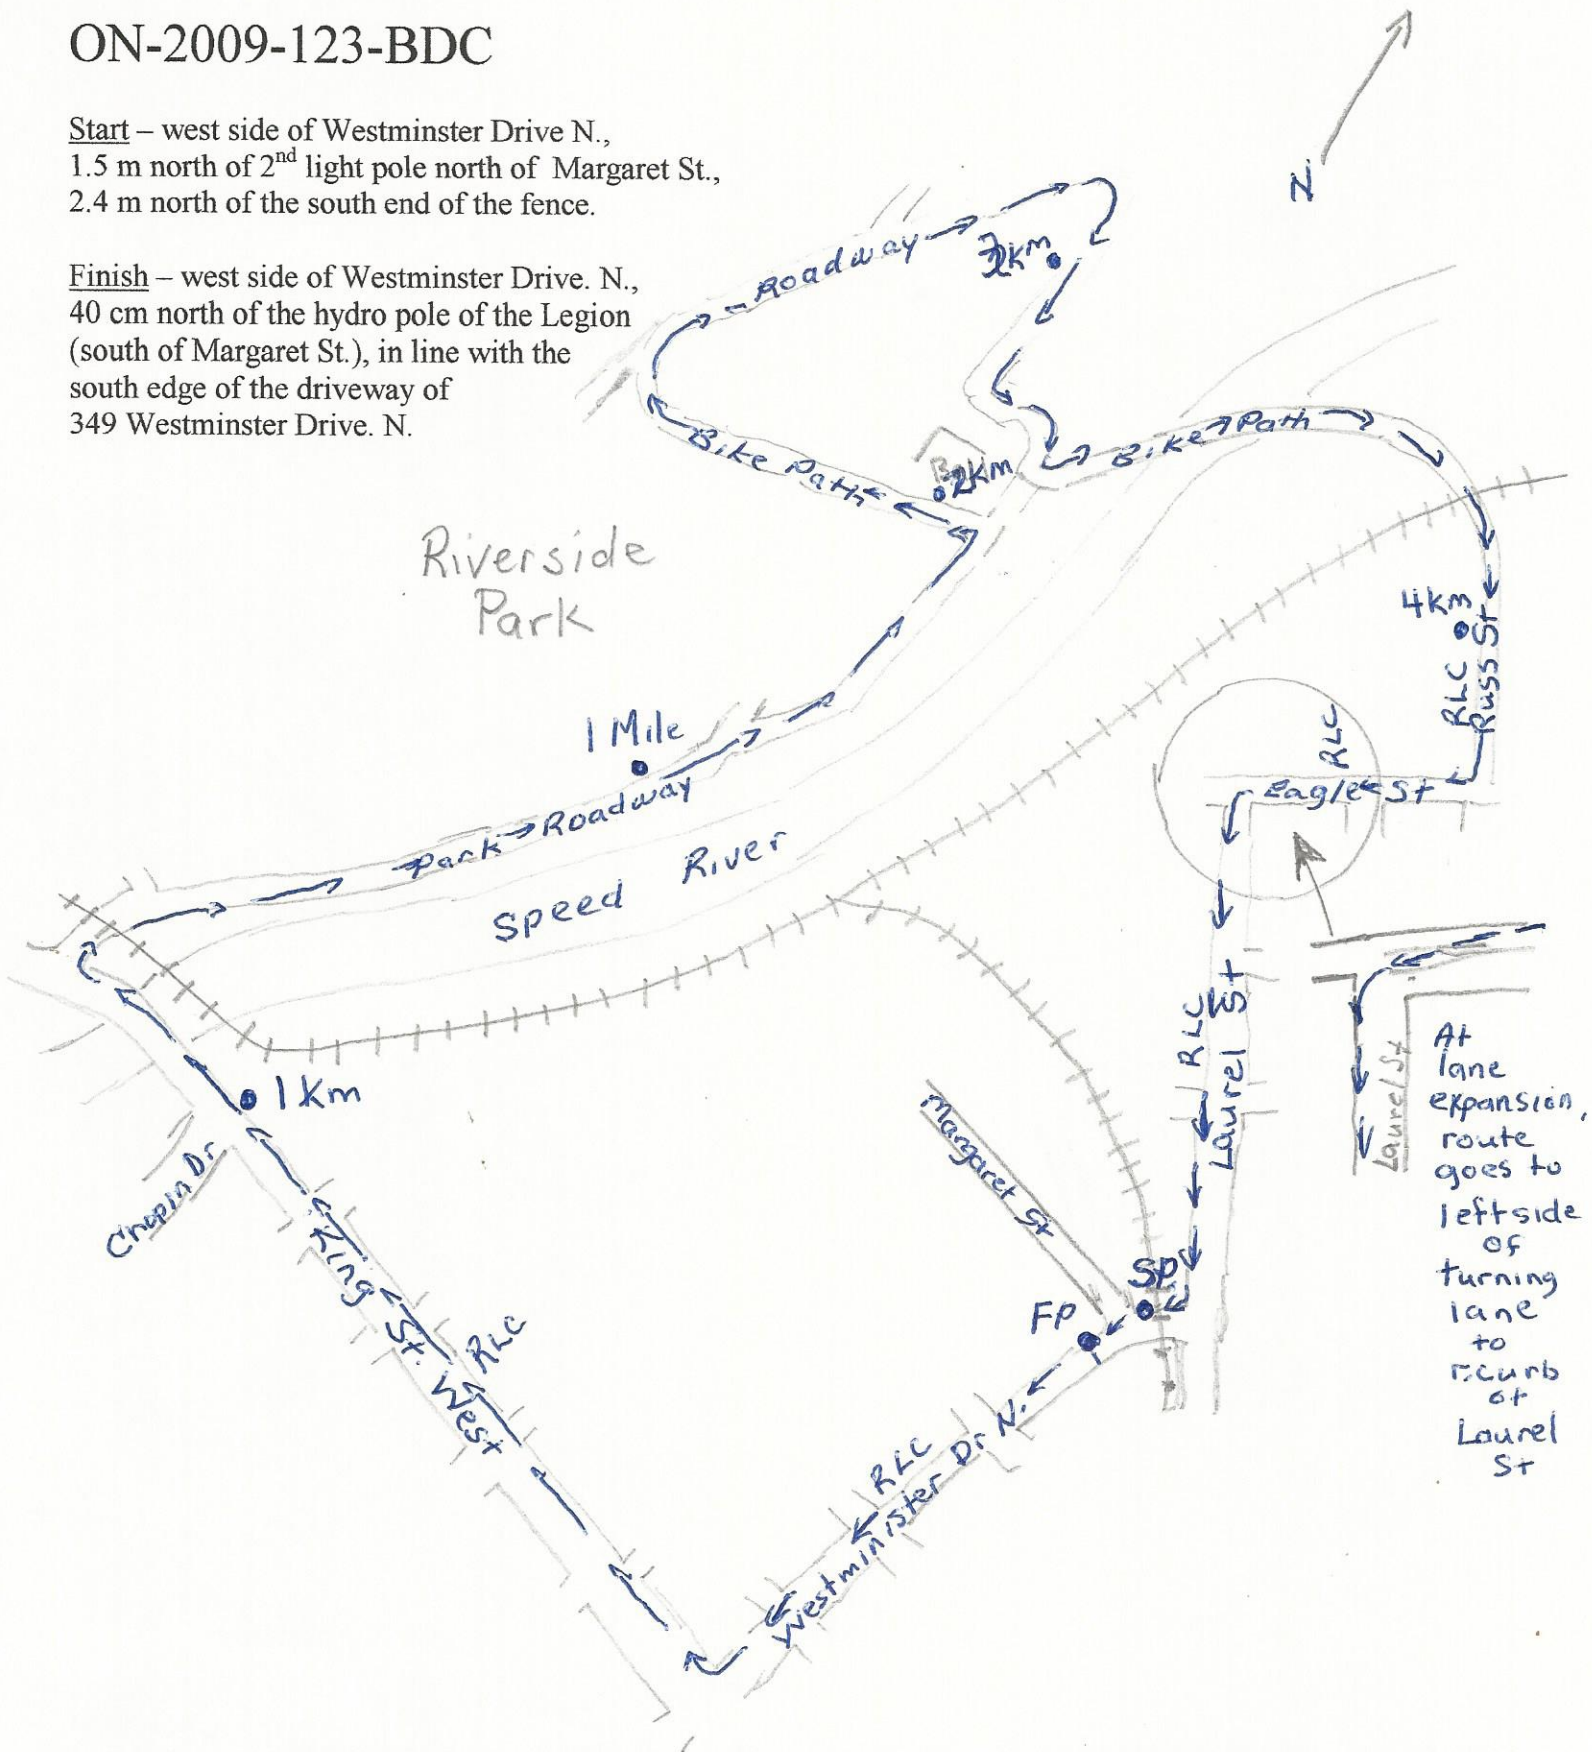 ON-2009-123-BDC
Start – west side of Westminster Drive N.,
1.5 m north of 2nd light pole north of Margaret St.,
2.4 m north of the south end of the fence.
Finish – west side of Westminster Drive. N.,
40 cm north of the hydro pole of the Legion
(south of Margaret St.), in line with the
south edge of the driveway of
349 Westminster Drive. N.
N
Roadway
3km
Bike Path
2km
Bike Path
Riverside
Park
4km
RLC
Russ St
1 Mile
RLC
Eagle St
Park Roadway
Speed River
RLC
Laurel St
Laurel St
At
lane
expansion,
route
goes to
left side
of
turning
lane
to
r. curb
of
Laurel
St
1 Km
Chopin Dr
Margaret St
SP
FP
King St. West
RLC
RLC
Westminister Dr N.